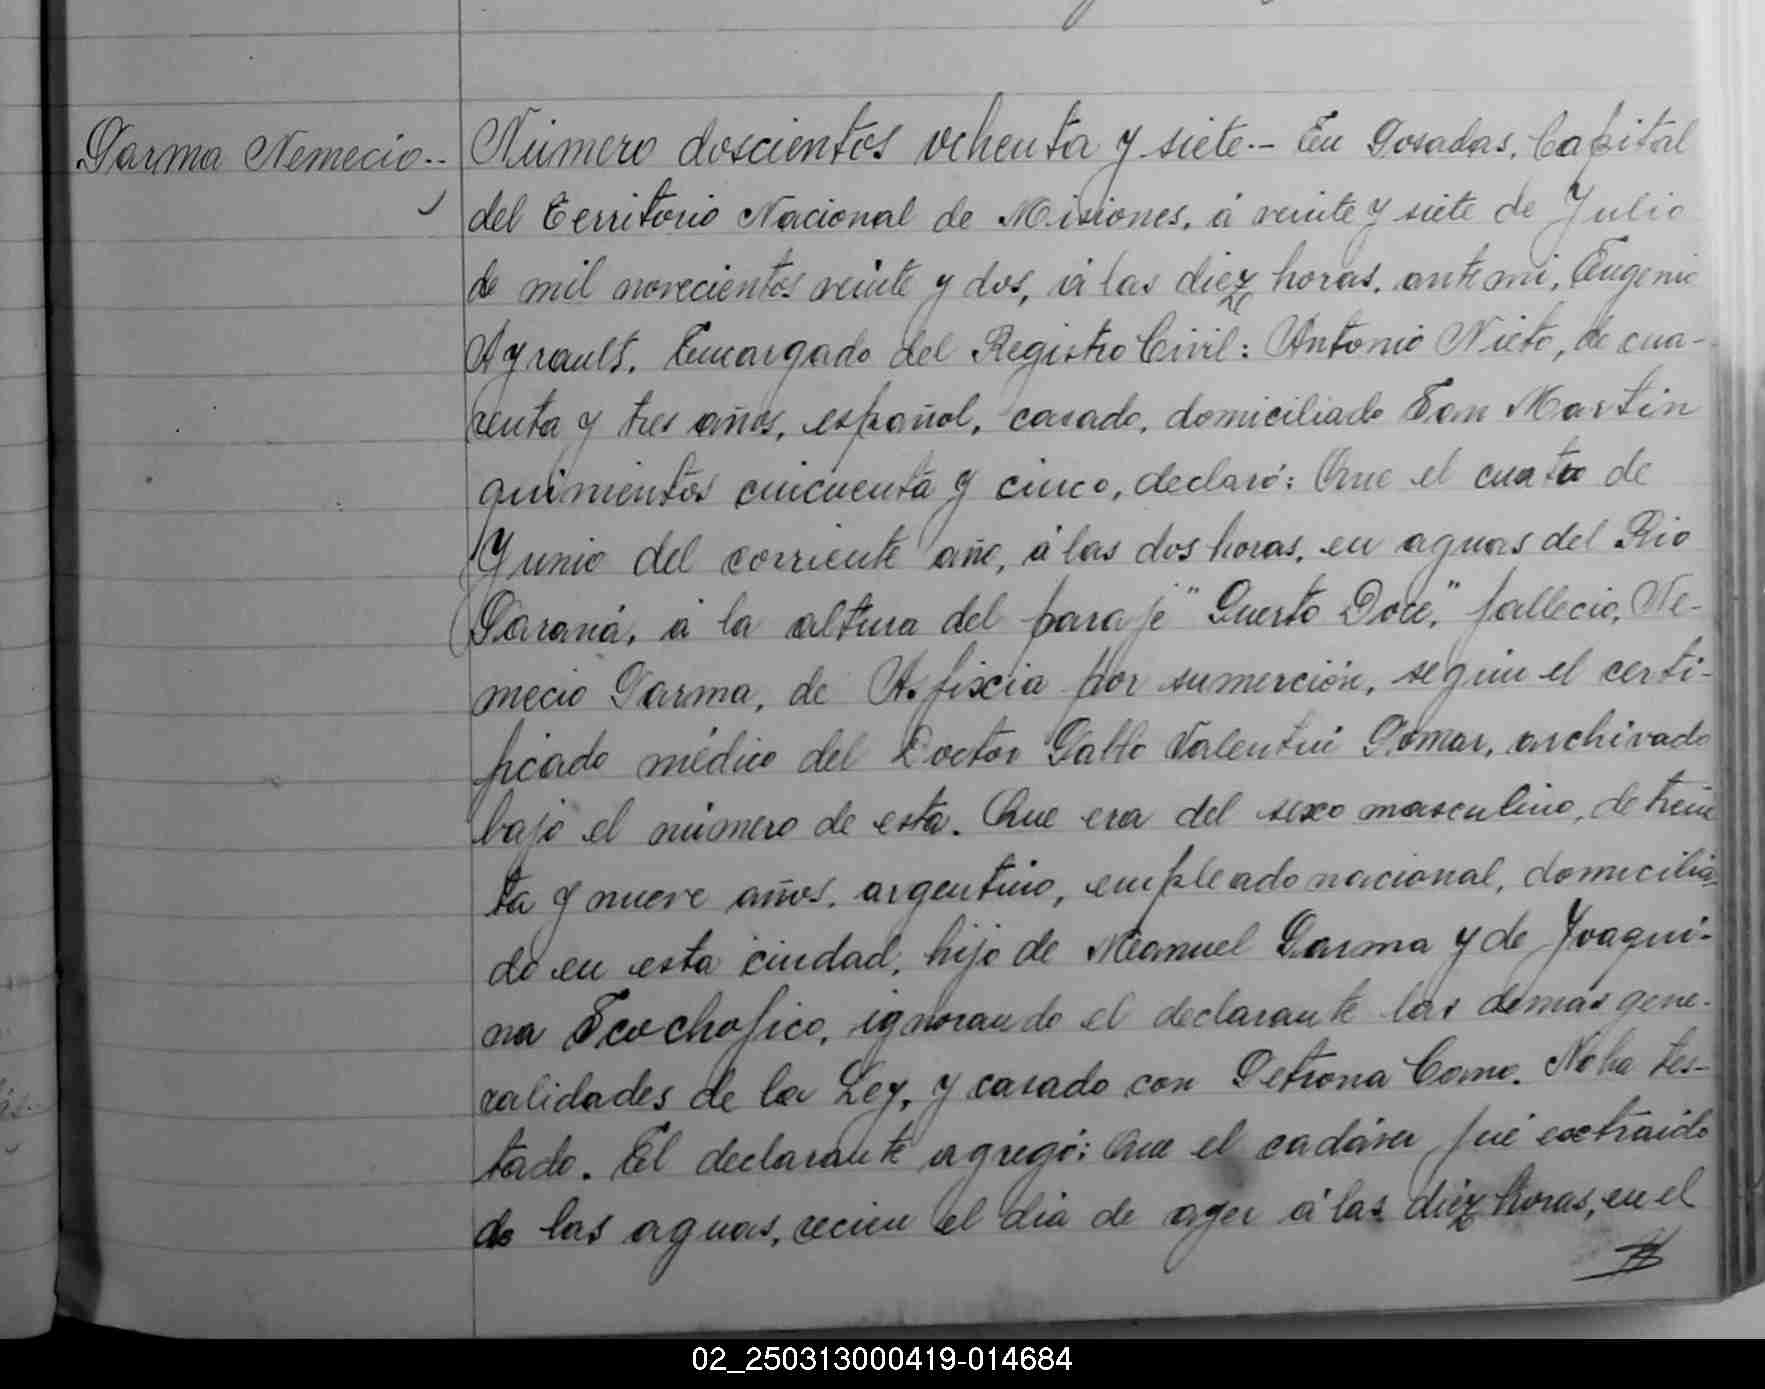 Parma Nemecio..
Número doscientos ochenta y siete.- En Posadas, Capital
del Territorio Nacional de Misiones, á veinte y siete de Julio
de mil novecientos veinte y dos, á las diez horas, ante mi, Eugenio
Ayrault, Encargado del Registro Civil: Antonio Nieto, de cua-
renta y tres años, español, casado, domiciliado San Martin
quinientos cincuenta y cinco, declaró: Que el cuatro de
Junio del corriente año, á las dos horas, en aguas del Rio
Paraná, á la altura del paraje "Puerto Doce," falleció, Ne-
mecio Parma, de Asfixia por sumerción, según el certi-
ficado médico del Doctor Pablo Valentin Pomar, archivado
bajo el número de esta. Que era del sexo masculino, de trein
ta y nueve años, argentino, empleado nacional, domicilia-
do en esta ciudad, hijo de Manuel Parma y de Joaqui-
na ignorando el declarante las demas gene-
ralidades de la Ley, y casado con Petrona Cano. No ha tes-
tado. El declarante agregó: Que el cadáver fué extraido
de las aguas, recien el dia de ayer á las diez horas, en el
02_250313000419-014684